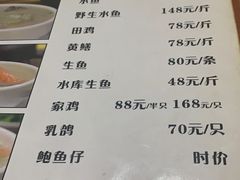 水鱼
野生水鱼 148元/斤
田鸡 78元/斤
黄鳝 78元/斤
生鱼 80元/条
水库生鱼 48元/斤
家鸡 88元/半只 168元/只
乳鸽 70元/只
鲍鱼仔 时价